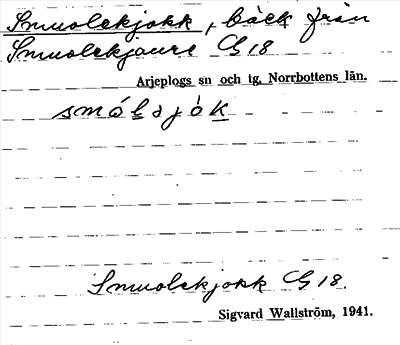 Smuolekjokk, bäck från
Smuolekjaure G 18
Arjeplogs sn och tg, Norrbottens län.
smålsjòk
Smuolekjokk G 18.
Sigvard Wallström, 1941.